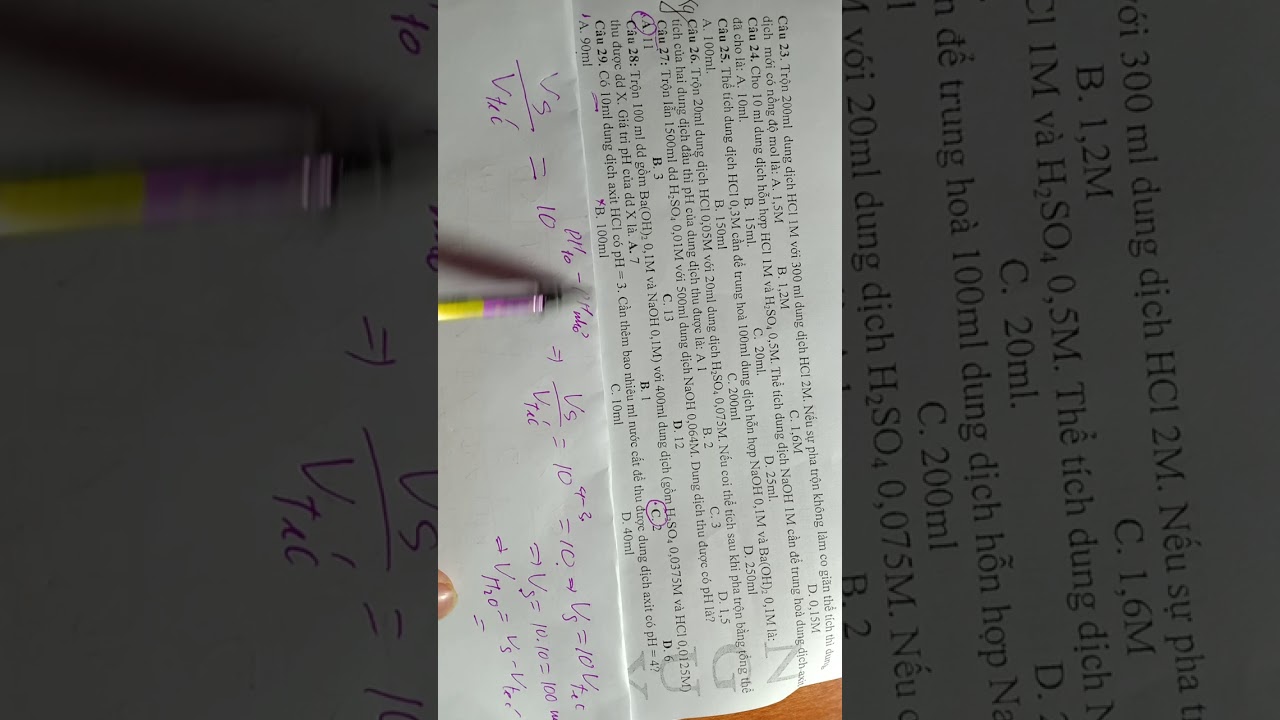 Câu 23. Trộn 200ml dung dịch HCl 1M với 300 ml dung dịch HCl 2M. Nếu sự pha trộn không làm co giãn thể tích thì dung
dịch mới có nồng độ mol là: A. 1,5M B. 1,2M C. 1,6M D. 0,15M
Câu 24. Cho 10 ml dung dịch hỗn hợp HCl 1M và H₂SO₄ 0,5M. Thể tích dung dịch NaOH 1M cần để trung hoà dung dịch axit
đã cho là: A. 10ml. B. 15ml. C. 20ml. D. 25ml.
Câu 25. Thể tích dung dịch HCl 0,3M cần để trung hoà 100ml dung dịch hỗn hợp NaOH 0,1M và Ba(OH)₂ 0,1M là:
A. 100ml. B. 150ml C. 200ml D. 250ml
Câu 26. Trộn 20ml dung dịch HCl 0,05M với 20ml dung dịch H₂SO₄ 0,075M. Nếu coi thể tích sau khi pha trộn bằng tổng thể
tích của hai dung dịch đầu thì pH của dung dịch thu được là: A 1 B. 2 C. 3 D. 1,5
Câu 27: Trộn lẫn 1500ml dd H₂SO₄ 0,01M với 500ml dung dịch NaOH 0,064M. Dung dịch thu được có pH là?
A. 11 B. 3 C. 13 D. 12
Câu 28: Trộn 100 ml dd gồm Ba(OH)₂ 0,1M và NaOH 0,1M) với 400ml dung dịch (gồm H₂SO₄ 0,0375M và HCl 0,0125M)
thu được dd X. Giá trị pH của dd X là. A. 7 B. 1 C. 2 D. 6
Câu 29. Có 10ml dung dịch axit HCl có pH = 3. Cần thêm bao nhiêu ml nước cất để thu được dung dịch axit có pH = 4?
A. 90ml B. 100ml C. 10ml D. 40ml
Vs/Vtrc = 10 pHto - pHnhỏ ⇒ Vs/Vtrc = 10⁴⁻³ = 10 ⇒ Vs = 10Vtrc
⇒ Vs = 10.10 = 100
⇒ VH₂O = Vs - Vtrc
=
với 300 ml dung dịch HCl 2M. Nếu sự pha
B. 1,2M C. 1,6M
Cl 1M và H₂SO₄ 0,5M. Thể tích dung dịch
C. 20ml. D.
để trung hoà 100ml dung dịch hỗn hợp
C. 200ml
với 20ml dung dịch H₂SO₄ 0,075M. Nếu
B. 2
⇒ Vs/Vtrc =